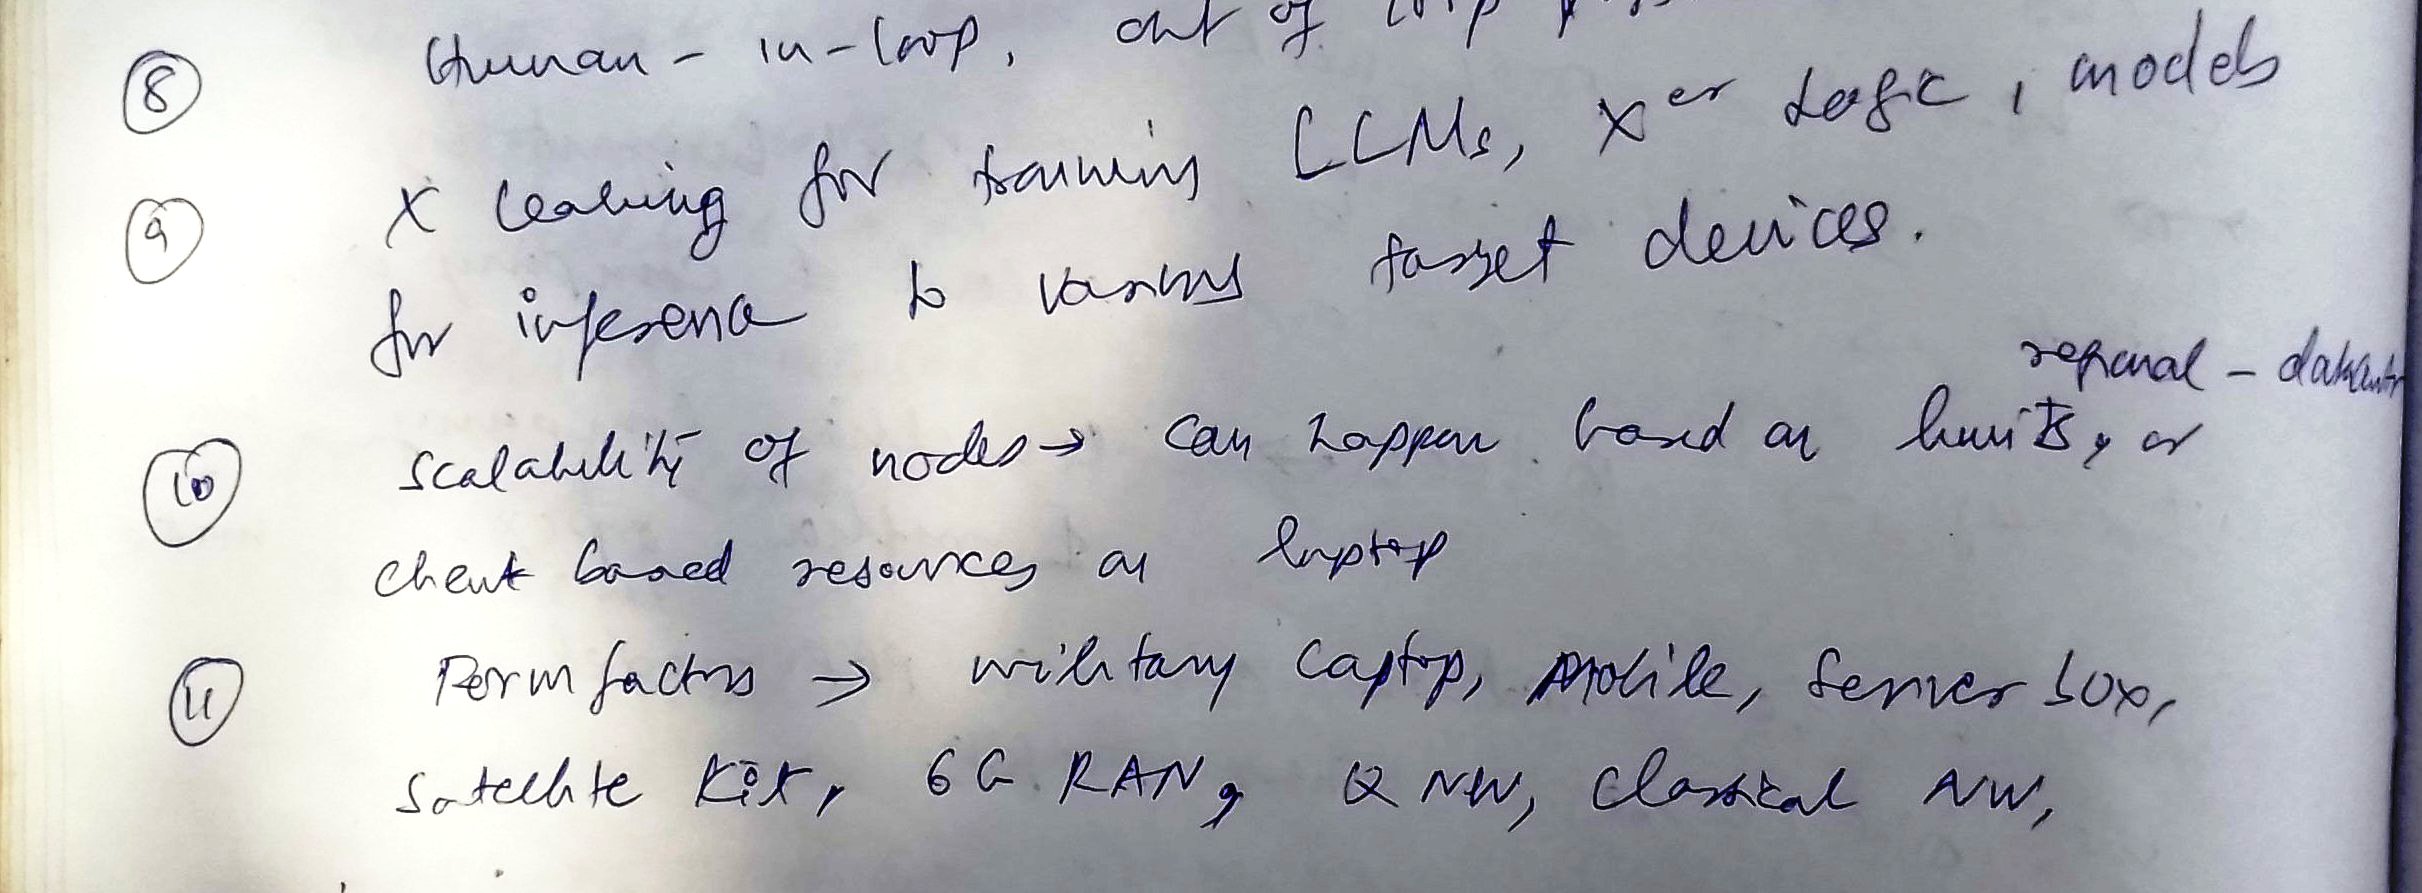 ⑧ Human-in-loop, out of loop
⑨ X learning for training LLMs, Xer Logic, models
for inference to various target devices.
regional - 
⑩ Scalability of nodes → can happen based on limits, or
client based resources on laptop
⑪ Form factors → military laptop, Mobile, server box,
Satellite Kit, 6G RAN, Q NW, classical NW,